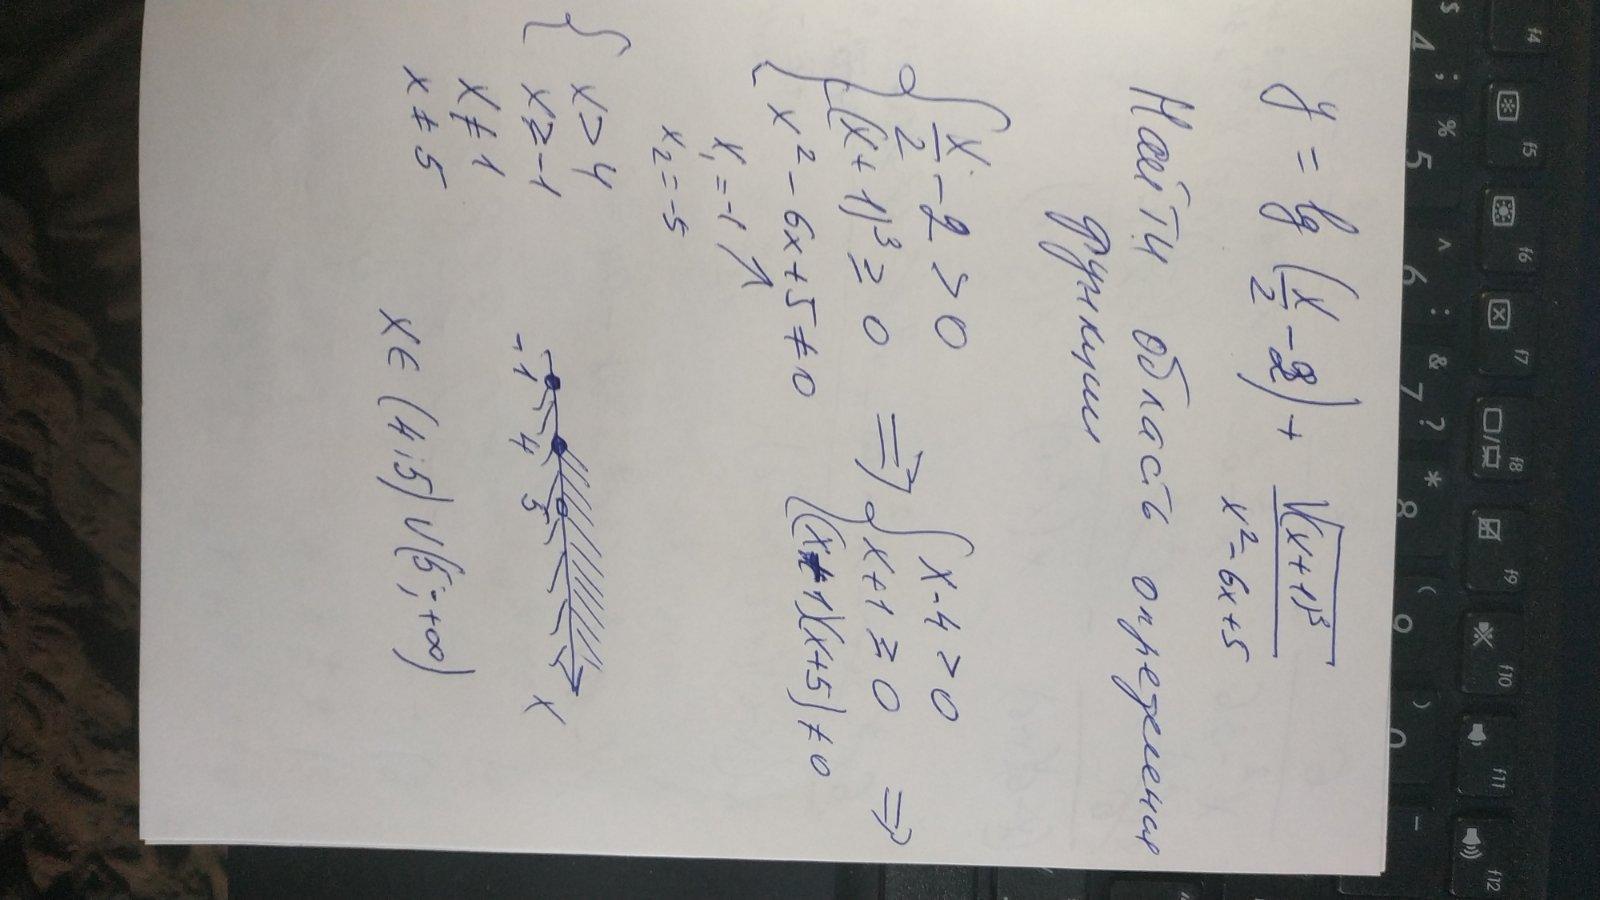 y = lg (x/2 - 2) + √(x+1)³ / x² - 6x + 5
Найти область определения
функции
{ x/2 - 2 > 0
(x+1)³ ≥ 0
x² - 6x + 5 ≠ 0
⇒ { x - 4 > 0
x + 1 ≥ 0
(x+1)(x+5) ≠ 0
⇒
x₁ = -1
x₂ = -5
{ x > 4
x ≥ -1
x ≠ 1
x ≠ 5
-1 4 5 x
x ∈ (4;5) ∪ (5; +∞)
$ 4 ; % 5 ^ 6 : & 7 ? * 8 ( 9 ) 0 -
f4 f5 f6 f7 f8 f9 f10 f11 f12